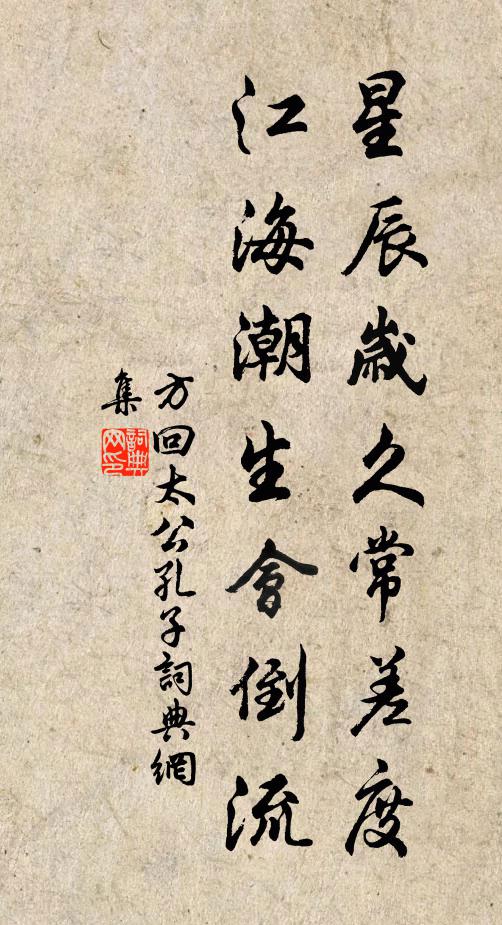 星辰歲久常差度
江海潮生會倒流
方回太公孔子詞典網
集
詞典
网印